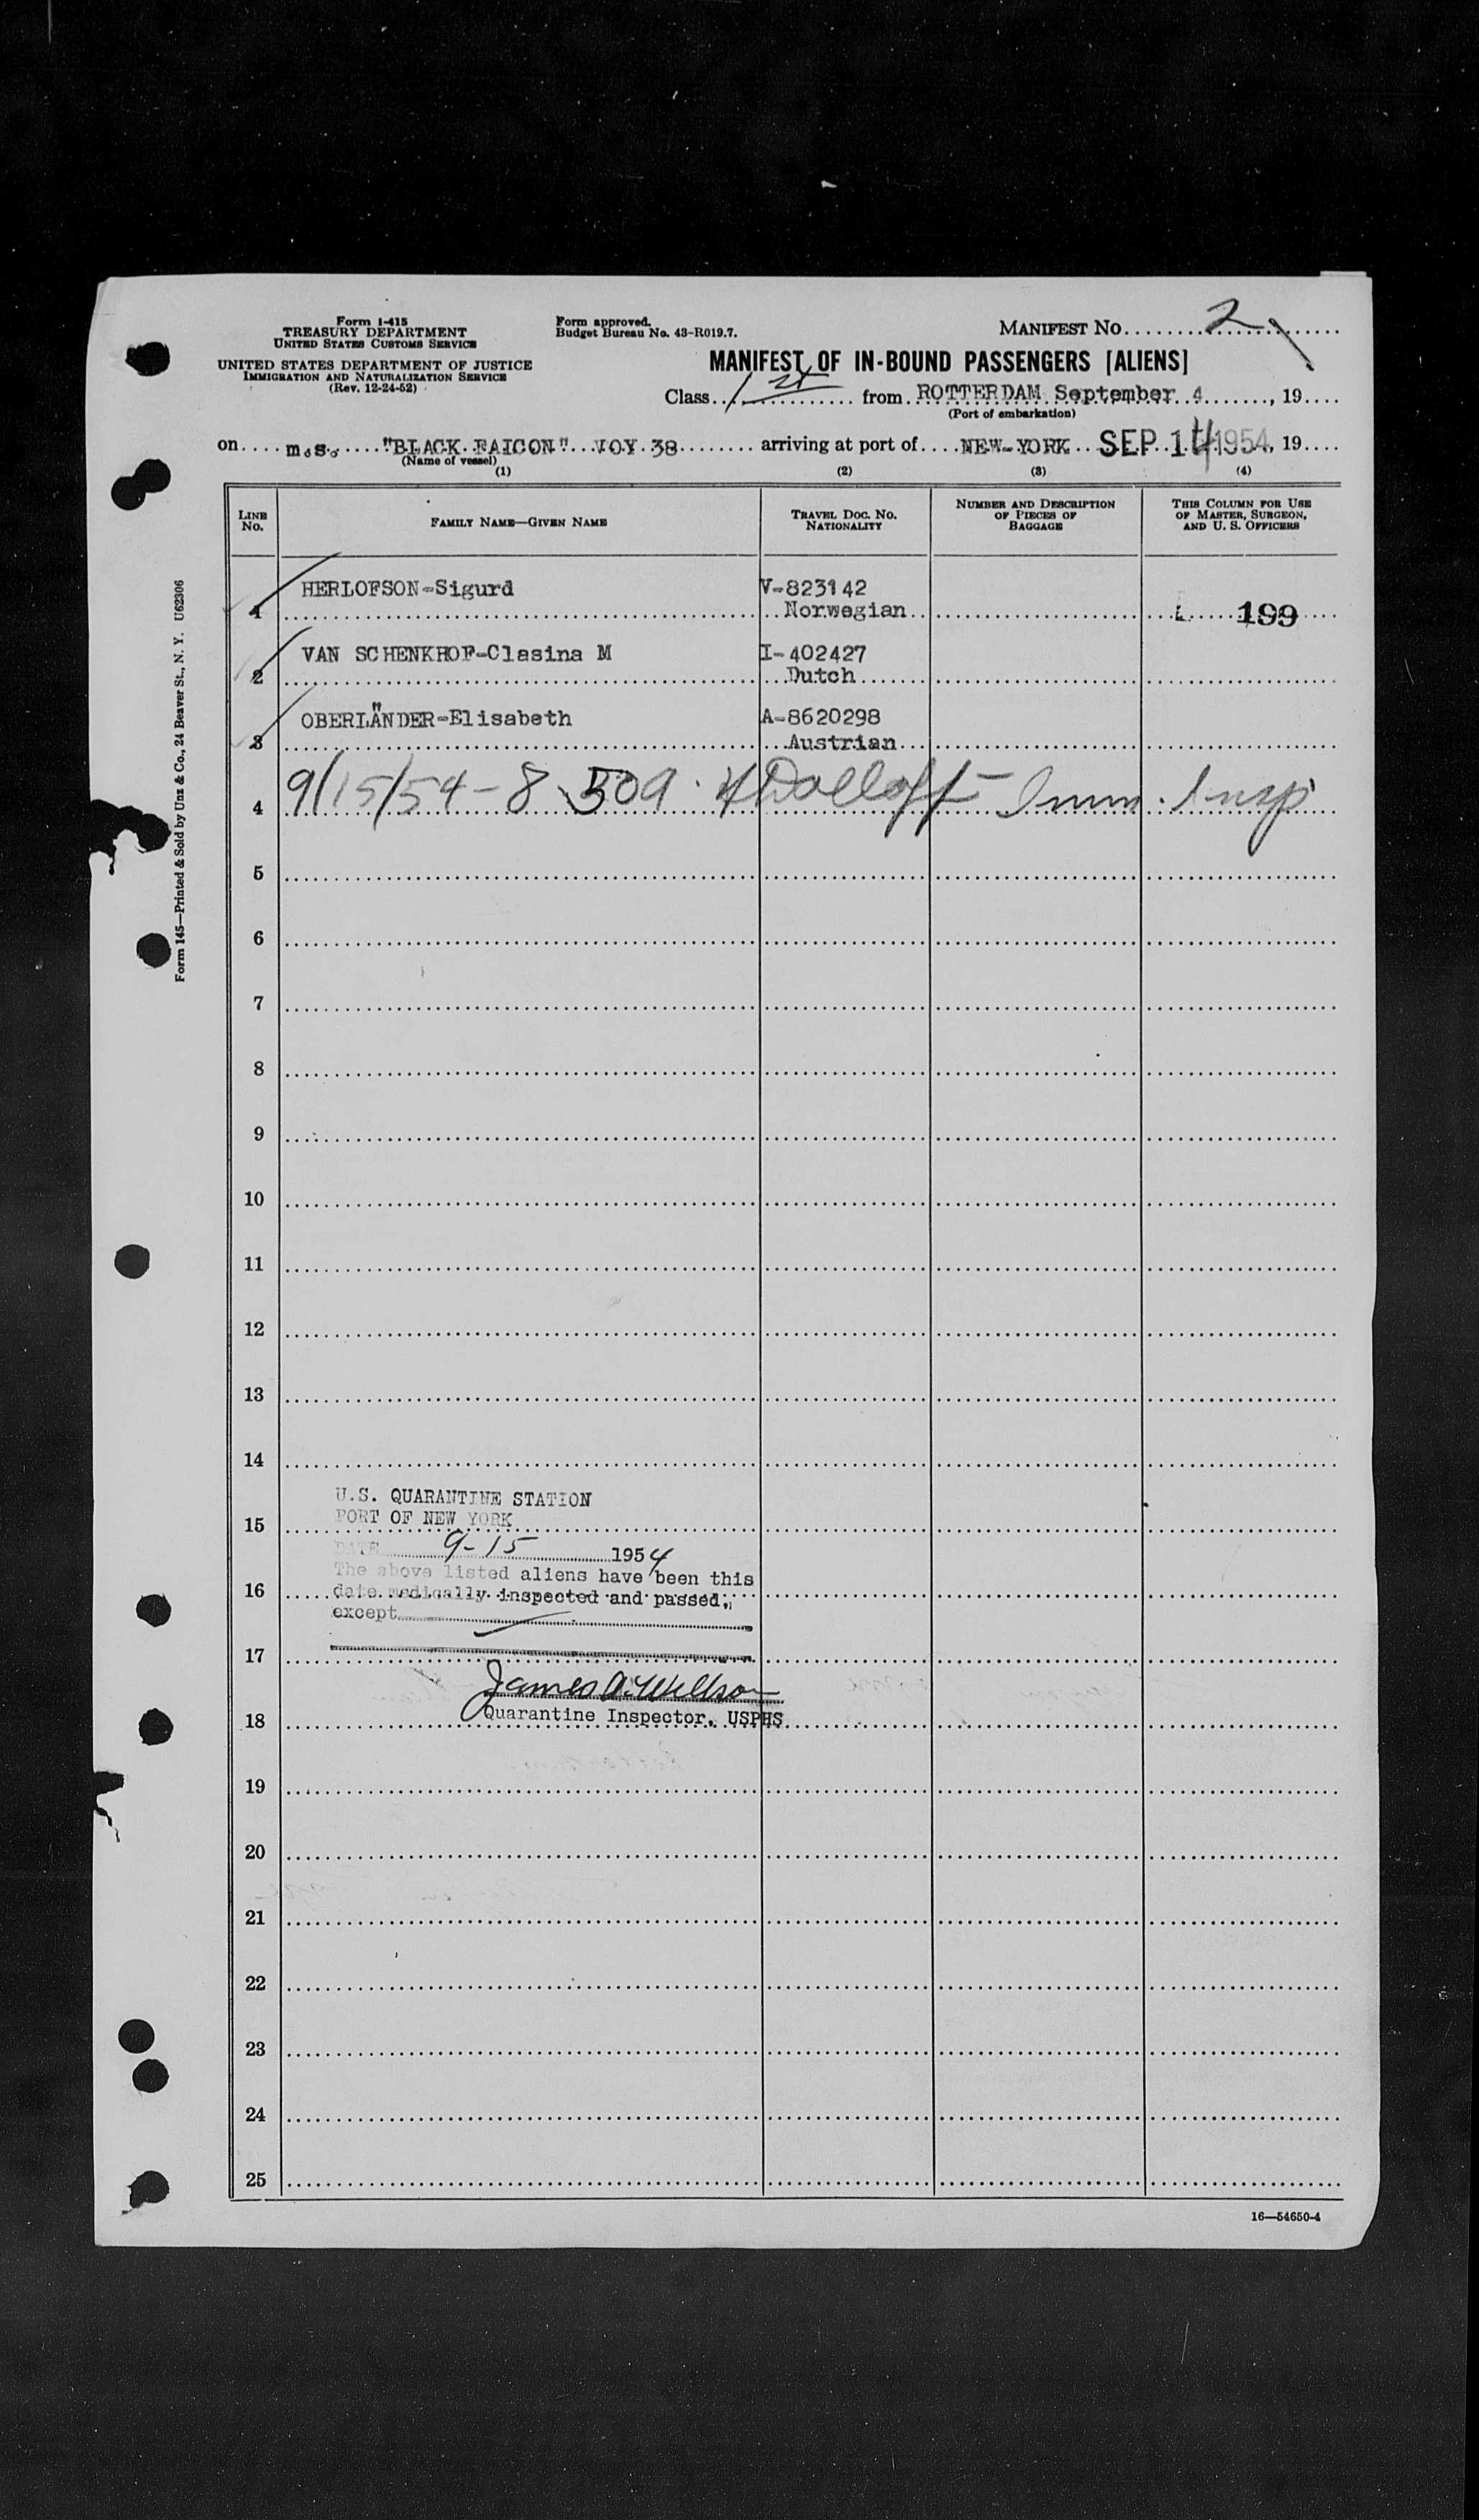 Form I-415
TREASURY DEPARTMENT
UNITED STATES CUSTOMS SERVICE
UNITED STATES DEPARTMENT OF JUSTICE
IMMIGRATION AND NATURALIZATION SERVICE
(Rev. 12-24-52)
Form approved.
Budget Bureau No. 43-R019.7.
MANIFEST NO. 2
MANIFEST OF IN-BOUND PASSENGERS [ALIENS]
Class 1st from ROTTERDAM September 4, 19
(Port of embarkation)
on m.s. "BLACK FALCON" VOY 38 arriving at port of NEW-YORK SEP 14 1954, 19
(Name of vessel)
(1) (2) (3) (4)
LINE NO. FAMILY NAME—GIVEN NAME TRAVEL DOC. NO. NATIONALITY NUMBER AND DESCRIPTION OF PIECES OF BAGGAGE THIS COLUMN FOR USE OF MASTER, SURGEON, AND U. S. OFFICERS
1 HERLOFSON-Sigurd V-823142 Norwegian 199
2 VAN SCHENKHOF-Clasina M I-402427 Dutch
3 OBERLÄNDER-Elisabeth A-8620298 Austrian
4 9/15/54 - 8 50a. Dolloff - Imm. Insp
5
6
7
8
9
10
11
12
13
14
U.S. QUARANTINE STATION
15 PORT OF NEW YORK
DATE 9-15 1954
The above listed aliens have been this
16 date medically inspected and passed,
except
17
James A. Willson
18 Quarantine Inspector, USPHS
19
20
21
22
23
24
25
16—54650-4
Form 145—Printed & Sold by Unz & Co., 24 Beaver St., N. Y. U62306